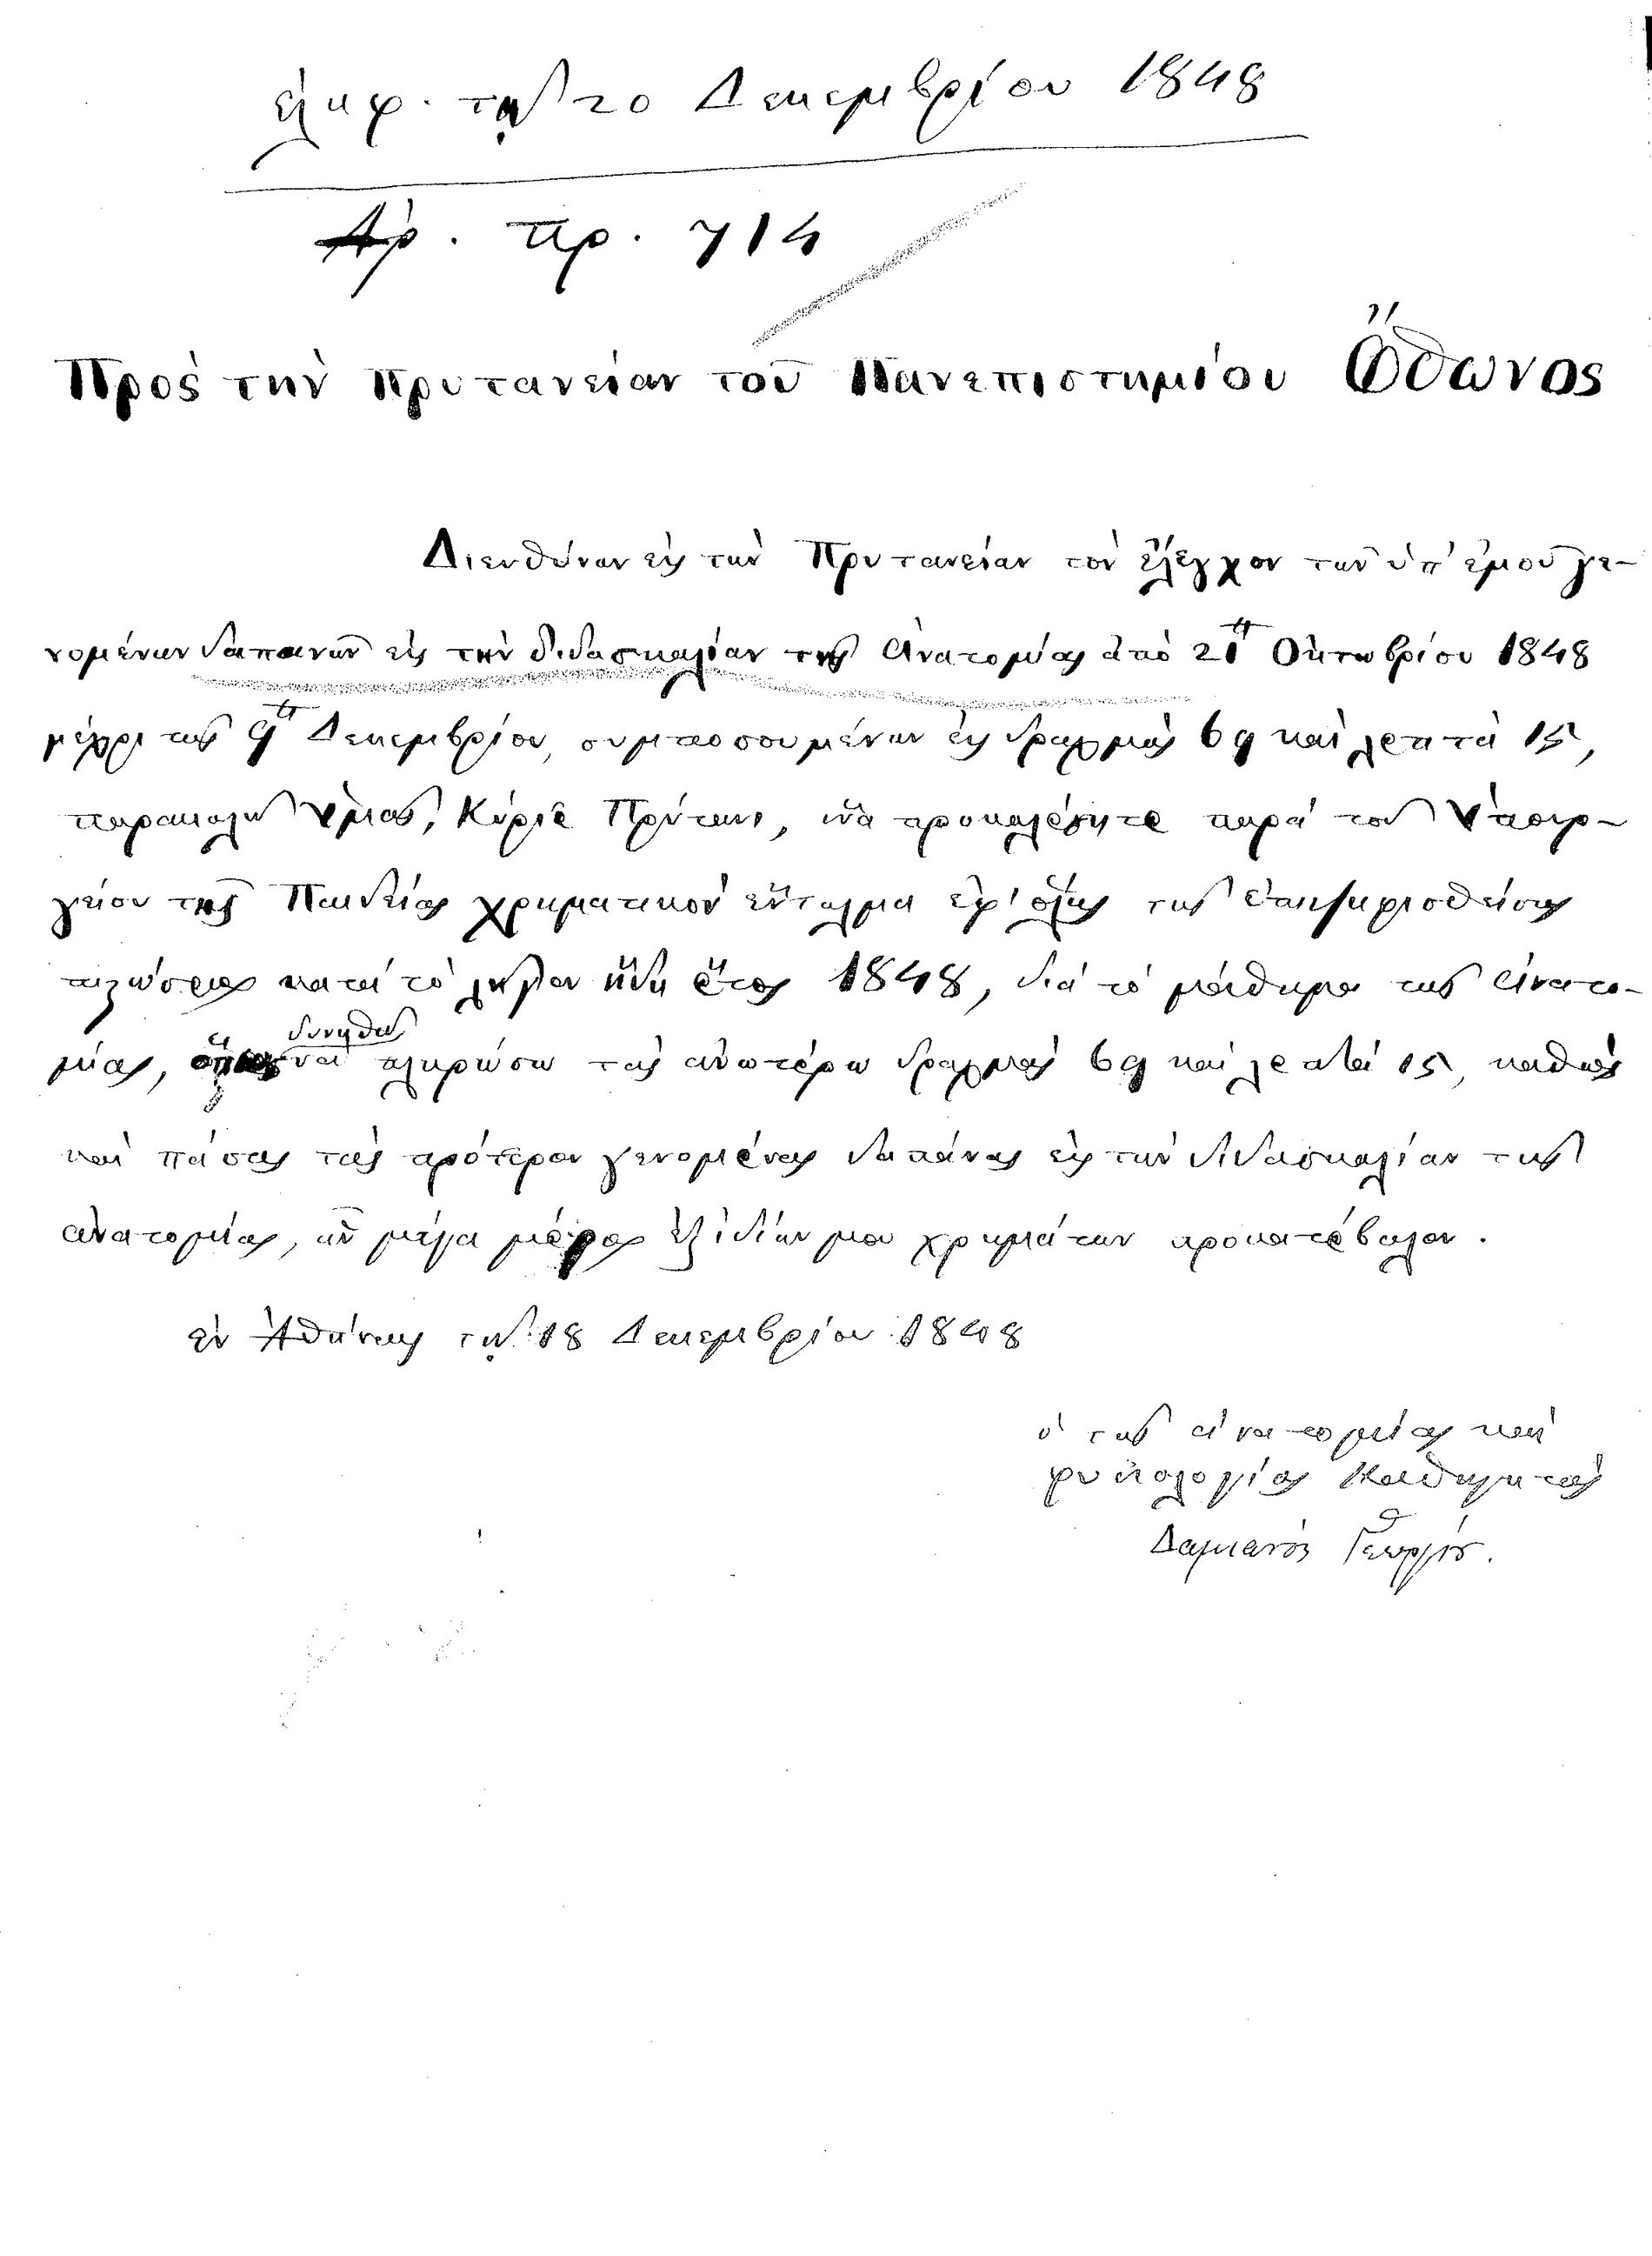 ἐλήφ. τῇ 20 Δεκεμβρίου 1848
Ἀρ. πρ. 714
Πρὸς τὴν Πρυτανείαν τοῦ Πανεπιστημίου Ὄθωνος
Διευθύνων εἰς τὴν Πρυτανείαν τὸν ἔλεγχον τῶν ὑπ' ἐμοῦ γε-
νομένων δαπανῶν εἰς τὴν διδασκαλίαν τῆς Ἀνατομίας ἀπὸ 21 Ὀκτωβρίου 1848
μέχρι τῆς 9 Δεκεμβρίου, συμποσουμένων εἰς δραχμὰς 69 καὶ λεπτὰ 15,
παρακαλῶ Ὑμᾶς, Κύριε Πρύτανι, νὰ προκαλέσητε παρὰ τοῦ Ὑπουρ-
γείου τῆς Παιδείας χρηματικὸν ἔνταλμα ἐφ' ὅλης τῆς ἐπιψηφισθείσης
κατὰ τὸ λῆξαν ἤδη ἔτος 1848, διὰ τὸ μάθημα τῆς Ἀνατο-
μίας, ὅπως δυνηθῶ νὰ πληρώσω τὰς ἀνωτέρω δραχμὰς 69 καὶ λεπτὰ 15, καθὼς
καὶ πάσας τὰς πρότερον γενομένας δαπάνας εἰς τὴν διδασκαλίαν τῆς
ἀνατομίας, ὧν μέγα μέρος ἐξ ἰδίων μου χρημάτων προκατέβαλον.
ἐν Ἀθήναις τῇ 18 Δεκεμβρίου 1848
ὁ τῆς ἀνατομίας καὶ
φυσιολογίας Καθηγητὴς
Δαμιανὸς Γεωργίου.